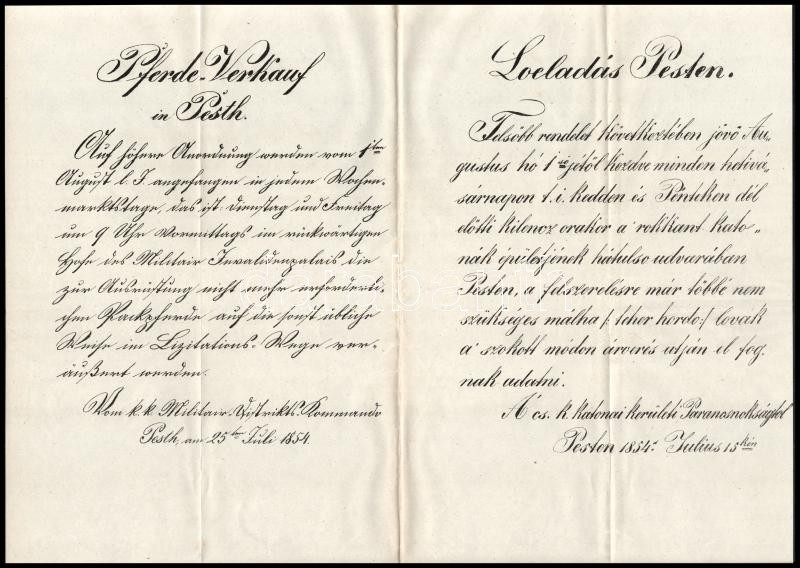 Pferde-Verkauf
in Pesth.
Auf höhere Anordnung werden vom 1ten
August l. J. angefangen in jedem Wochen-
marktstage, das ist: Dienstag und Freitag
um 9 Uhr Vormittags im rückwärtigen
Hofe des Militair Invalidenpalais die
zur Ausrüstung nicht mehr erforderli-
chen Packpferde auf die sonst übliche
Weise im Lizitations-Wege ver-
äußert werden.
Vom k.k. Militair-Distrikts-Commando
Pesth, am 25ten Juli 1854.
Loeladás Pesten.
Felsőbb rendelet következtében jövő Au„
gustus hó 1ső jétől kezdve minden hetivá„
sárnapon t. i. kedden és Pénteken dél
előtti kilencz orakor a' rokkant kato„
nák épületjének hátulso udvarában
Pesten, a felszerelésre már többé nem
szükséges málha /: teher hordo:/ lovak
a' szokott módon árverés utján el fog„
nak adatni.
A cs. k. katonai kerületi Parancsnokságtol
Pesten 1854. Julius 15kén